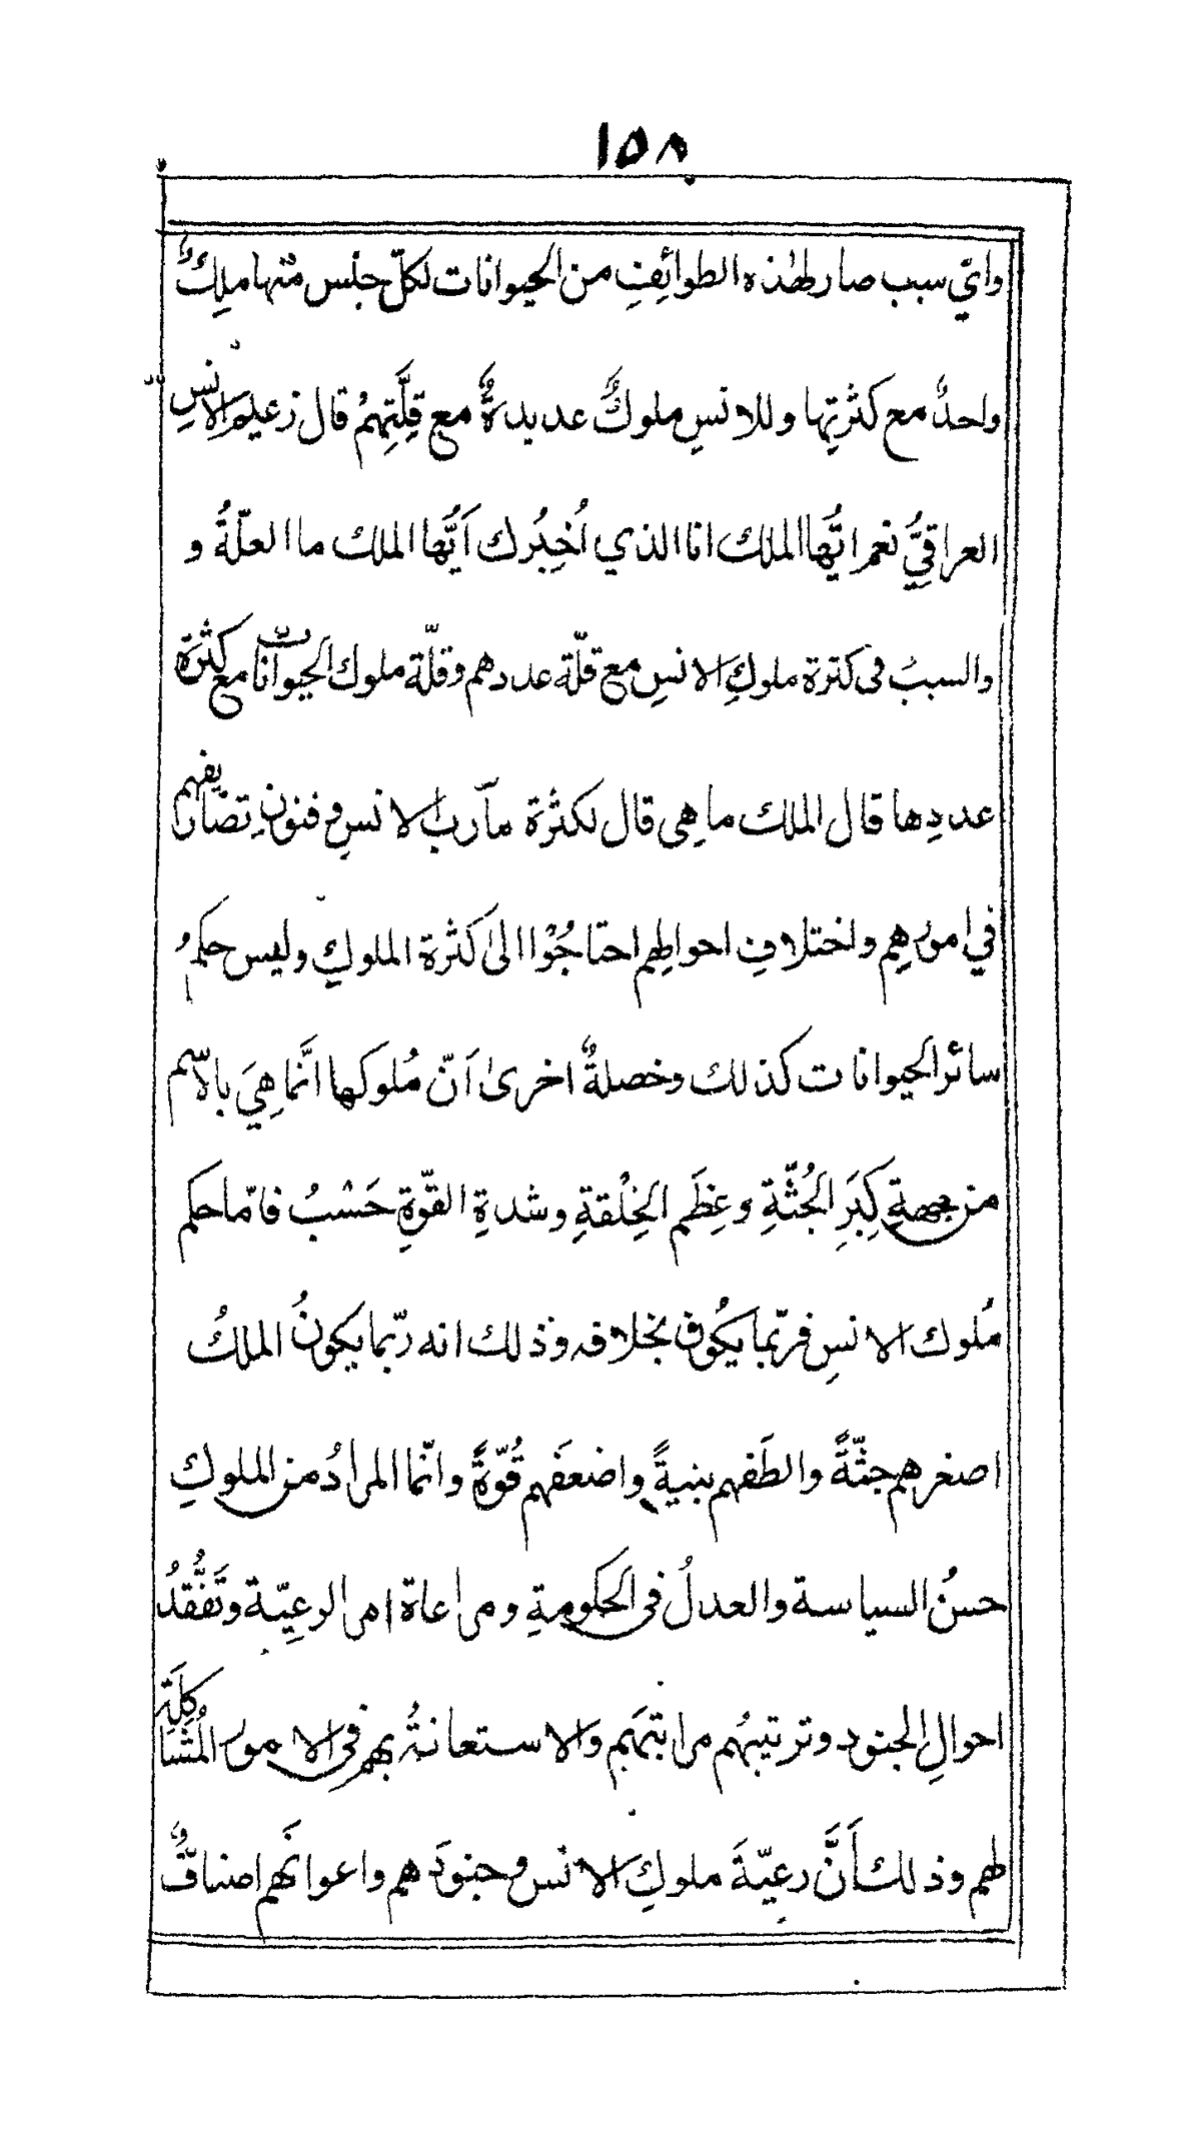 ١٥٨
وايّ سبب صار لهٰذه الطوائِفِ من الحيوانات لكلّ جنْس منْها ملِكٌ
واحدٌ مع كثرتِها وللانسِ ملوكٌ عديدةٌ مع قِلَّتِهِمْ قال زعيم الانسِ
العراقيُّ نعم ايُّها الملك انا الذي اُخبِرُك اَيُّها الملك ما العلّةُ و
والسببُ فى كثرة ملوكِ الانسِ مع قلّة عددهم وقلّة ملوك الحيوانات مع كثرة
عددِها قال الملك ما هِى قال لكثرة مآرب الانسِ وفنونِ تصاريفهم
في امورهِم واختلافِ احوالهِم احتاجُوْا الىٰ كثرة الملوكِ وليس حكمُ
سائر الحيوانات كذلك وخصلةٌ اخرىٰ اَنّ مُلوكها انَّما هِيَ بالاسْم
من جهةِ كِبَرِ الجُثّةِ وعِظَم الخِلْقةِ وشدةِ القوّةِ حَسْبُ فامّا حكم
مُلوك الانسِ فربّما يكُون بخلافه وذلك انه ربّما يكونُ الملكُ
اصغرهم جثّةً والطَفهم بنيةً واضعَفهم قُوّةً وانّما المرادُ من الملوكِ
حسنُ السياسة والعدلُ فى الحكومةِ ومراعاة امر الرعِيّة وتَفقُّدُ
احوالِ الجنود وترتيبُهم مراتبَهم والاستعانةُ بهم فى الامور المُشاكِلَة
لهم وذلك أنَّ رعيّةَ ملوكِ الانس وجنودَهم واعوانَهم اصنافٌ